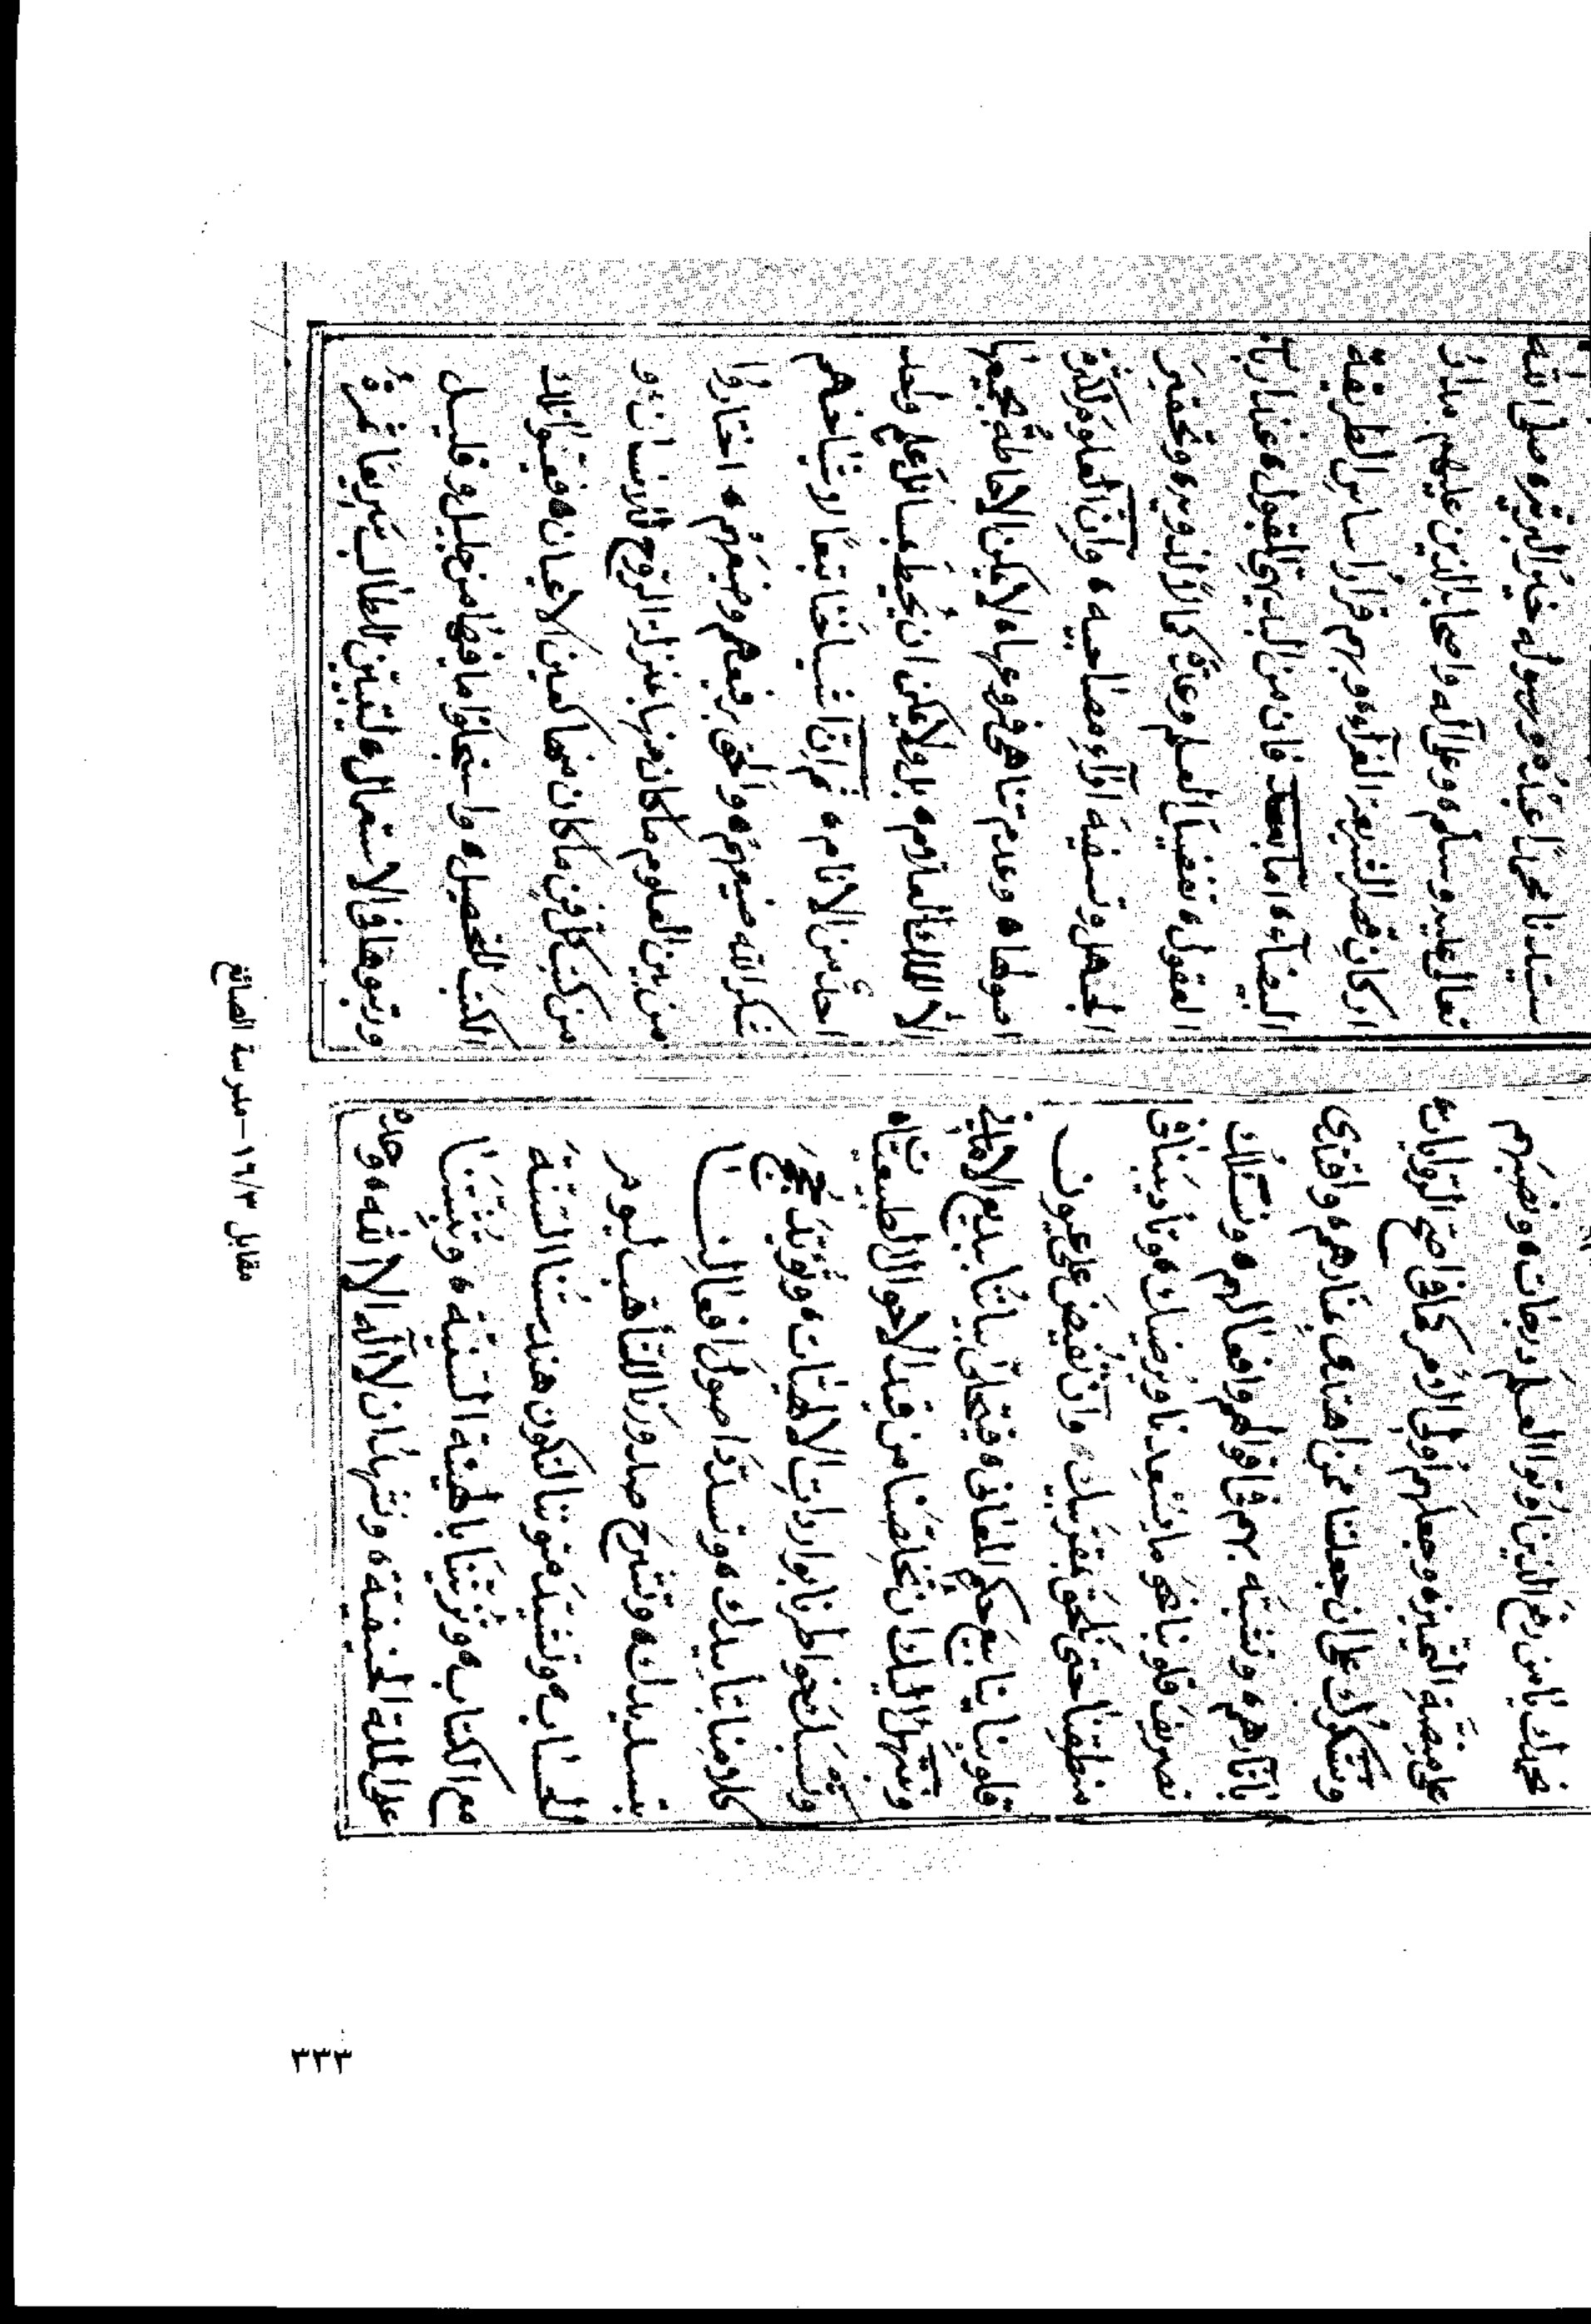 نحمدك يا من رفع الذين اوتوا العلم درجات ونصبهم
على منصة التمييز وجعلهم اولى الامر كما فى اصح الروايات
ونشكرك على ان جعلتنا ممن اهتدى بمنارهم واقتدى
بآثارهم وتشبه بهم فى اقوالهم وافعالهم ونسألك
تصريف قلوبنا نحو ما يسعدنا ويرضيك وتأديبنا فى
منطقنا حتى نلحق بمقربيك وان تفيض على عيون
قلوبنا ينابيع حكم المعانى فيتحلى بياننا ببديع الامانى
ونبتهل اليك ان تخلصنا من قيد الاحوال الطبيعيات
خواطرنا بواردات الالهيات وتؤيد حجج
كلامنا بتأييدك وتسدد اصول افعالنا
بتسديدك وتشرح صدورنا للتأهب ليوم
الحساب وتشيد متوننا لتكون هندستنا السنة
مع الكتاب بالهيئة السنية وتثبتنا
على الملة الحنيفية ونشهد ان لا اله الا الله وحده
سيدنا محمدا عبده ورسوله خير البرية صلى الله
تعالى عليه وسلم وعلى آله واصحابه الذين عليهم مدار
اركان قصر الشريعة الغراء وبهم قرار اساس الطريقة
البيضاء اما بعد فان من البديهى المقبول عند ارباب
العقول تفضيل العلم وعده كمالا لذويه وتحقير
الجهل وتسفيه آراء مصاحبيه وان العلوم لكثرة
اصولها وعدم تناهى فروعها لا يمكن الاحاطة بجميعها
الا للملك العلام بل ولا يمكن ان يحيط بمسائل علم واحد
احد من الانام ثم ان اشياخنا تبعا لاشياخهم
شكر الله صنيعهم والحق برفيعهم وضيعهم اختاروا
من بين العلوم ما كان منها بمنزلة الروح للانسان و
من كتب كل فن ما كان منها كعين الاعيان فعينوا تلك
الكتب للتحصيل واستجلوا ما فيها من جليل وقليل
ورتبوها فى الاستعمال ليتبين للطالب ثمرة
مقابل ١٦/٣ – مدرسة الصائغ
٣٣٣